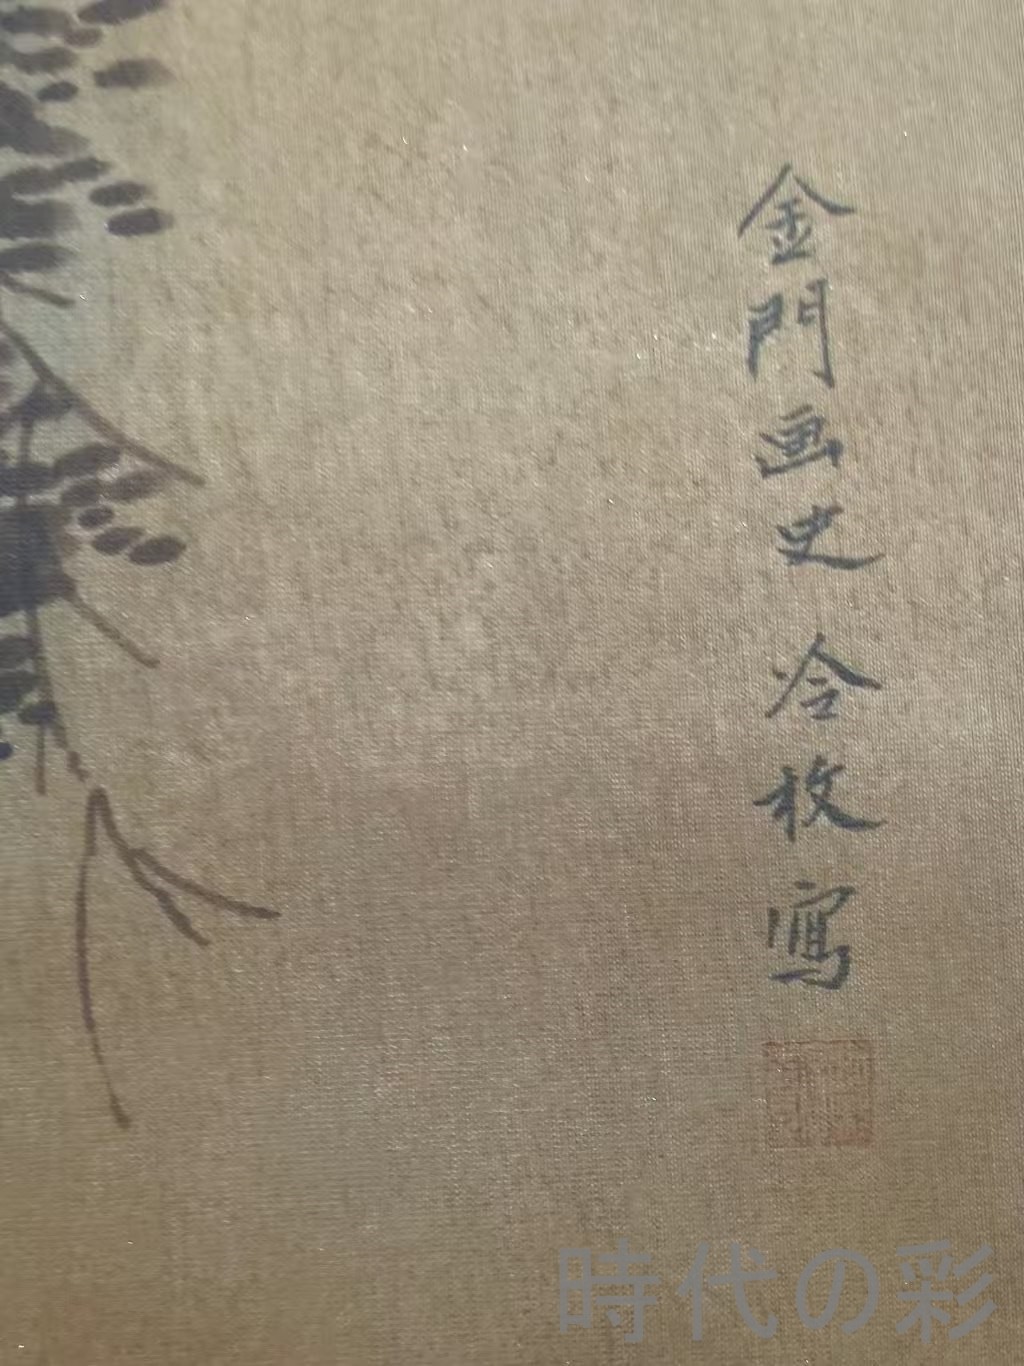 金門画史冷枚寫
時代の彩